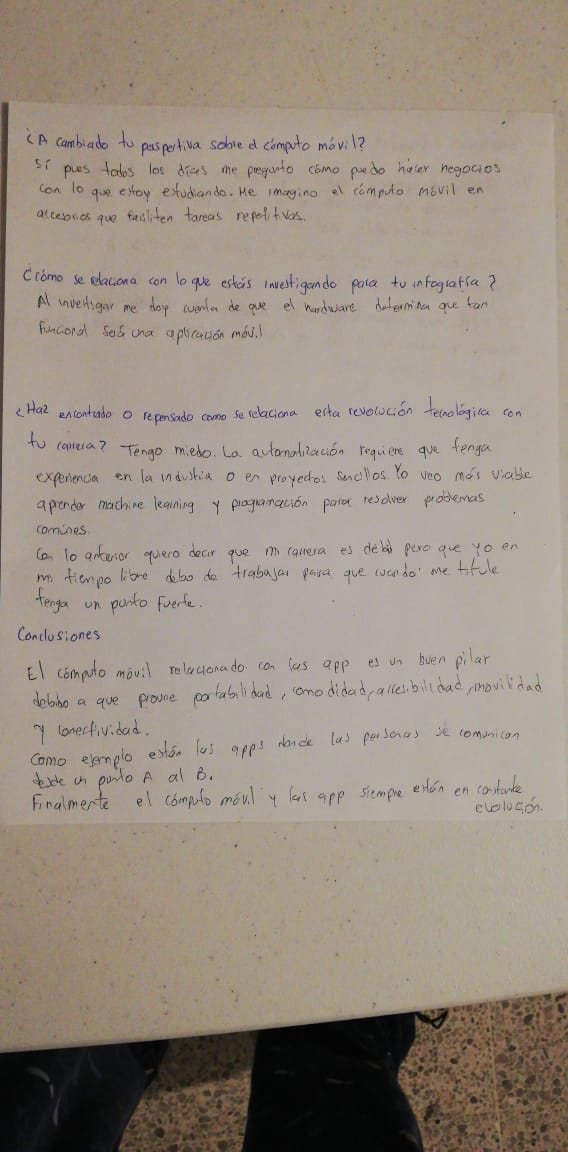 ¿A cambiado tu perspertiva sobre el cómputo móvil?
Sí pues todos los días me pregunto cómo puedo hacer negocios
con lo que estoy estudiando. Me imagino el cómputo móvil en
accesorios que faciliten tareas repetitivas.
¿Cómo se relaciona con lo que estás investigando para tu infografía?
Al investigar me doy cuenta de que el hardware determina que tan
funcional será una aplicación móvil
¿Haz encontrado o repensado como se relaciona esta revolución tecnológica con
tu carrera? Tengo miedo. La automatización requiere que tenga
experiencia en la industria o en proyectos sencillos. Yo veo más viable
aprender machine learning y programación para resolver problemas
comúnes.
Con lo anterior quiero decir que mi carrera es débil pero que yo en
mi tiempo libre debo de trabajar para que cuando me titule
tenga un punto fuerte.
Conclusiones
El cómputo móvil relacionado con las app es un buen pilar
debido a que provee portabilidad, comodidad, accesibilidad, movilidad
y conectividad.
Como ejemplo están las apps donde las personas se comunican
desde un punto A al B.
Finalmente el cómputo móvil y las app siempre están en constante
evolución.